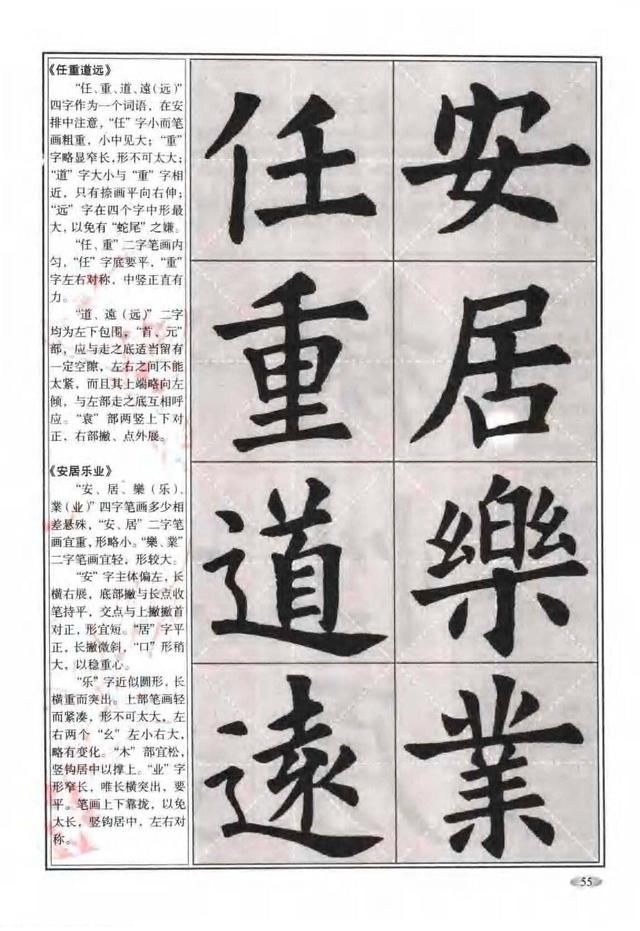 《任重道远》
“任、重、道、遠(远)”
四字作为一个词语，在安
排中注意，“任”字小而笔
画粗重，小中见大；“重”
字略显窄长，形不可太大；
“道”字大小与“重”字相
近，只有捺画平向右伸；
“远”字在四个字中形最
大，以免有“蛇尾”之嫌。
“任、重”二字笔画内
匀，“任”字底要平，“重”
字左右对称，中竖正直有
力。
“道、遠(远)”二字
均为左下包围。“首、元”
部，应与走之底适当留有
一定空隙，左右之间不能
太紧，而且其上端略向左
倾，与左部走之底互相呼
应。“袁”部两竖上下对
正，右部撇、点外展。
《安居乐业》
“安、居、樂(乐)、
業(业)”四字笔画多少相
差悬殊，“安、居”二字笔
画宜重，形略小。“樂、業”
二字笔画宜轻，形较大。
“安”字主体偏左，长
横右展，底部撇与长点收
笔持平，交点与上撇撇首
对正，形宜短。“居”字平
正，长撇微斜，“口”形稍
大，以稳重心。
“乐”字近似圆形，长
横重而突出。上部笔画轻
而紧凑，形不可太大，左
右两个“幺”左小右大，
略有变化。“木”部宜松，
竖钩居中以撑上。“业”字
形窄长，唯长横突出，要
平。笔画上下靠拢，以免
太长，竖钩居中，左右对
称。
任重道遠
安居樂業
55